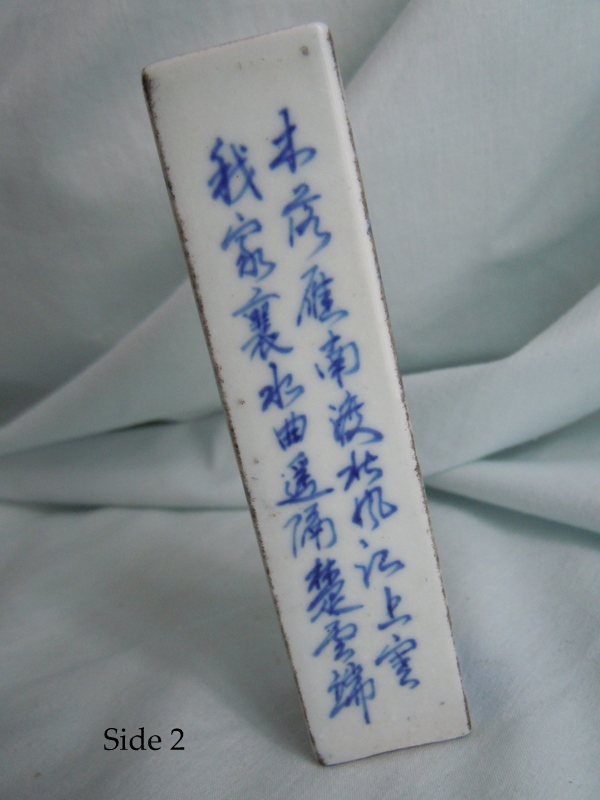 木落雁南渡北風江上寒
我家襄水曲遥隔楚雲端
Side 2